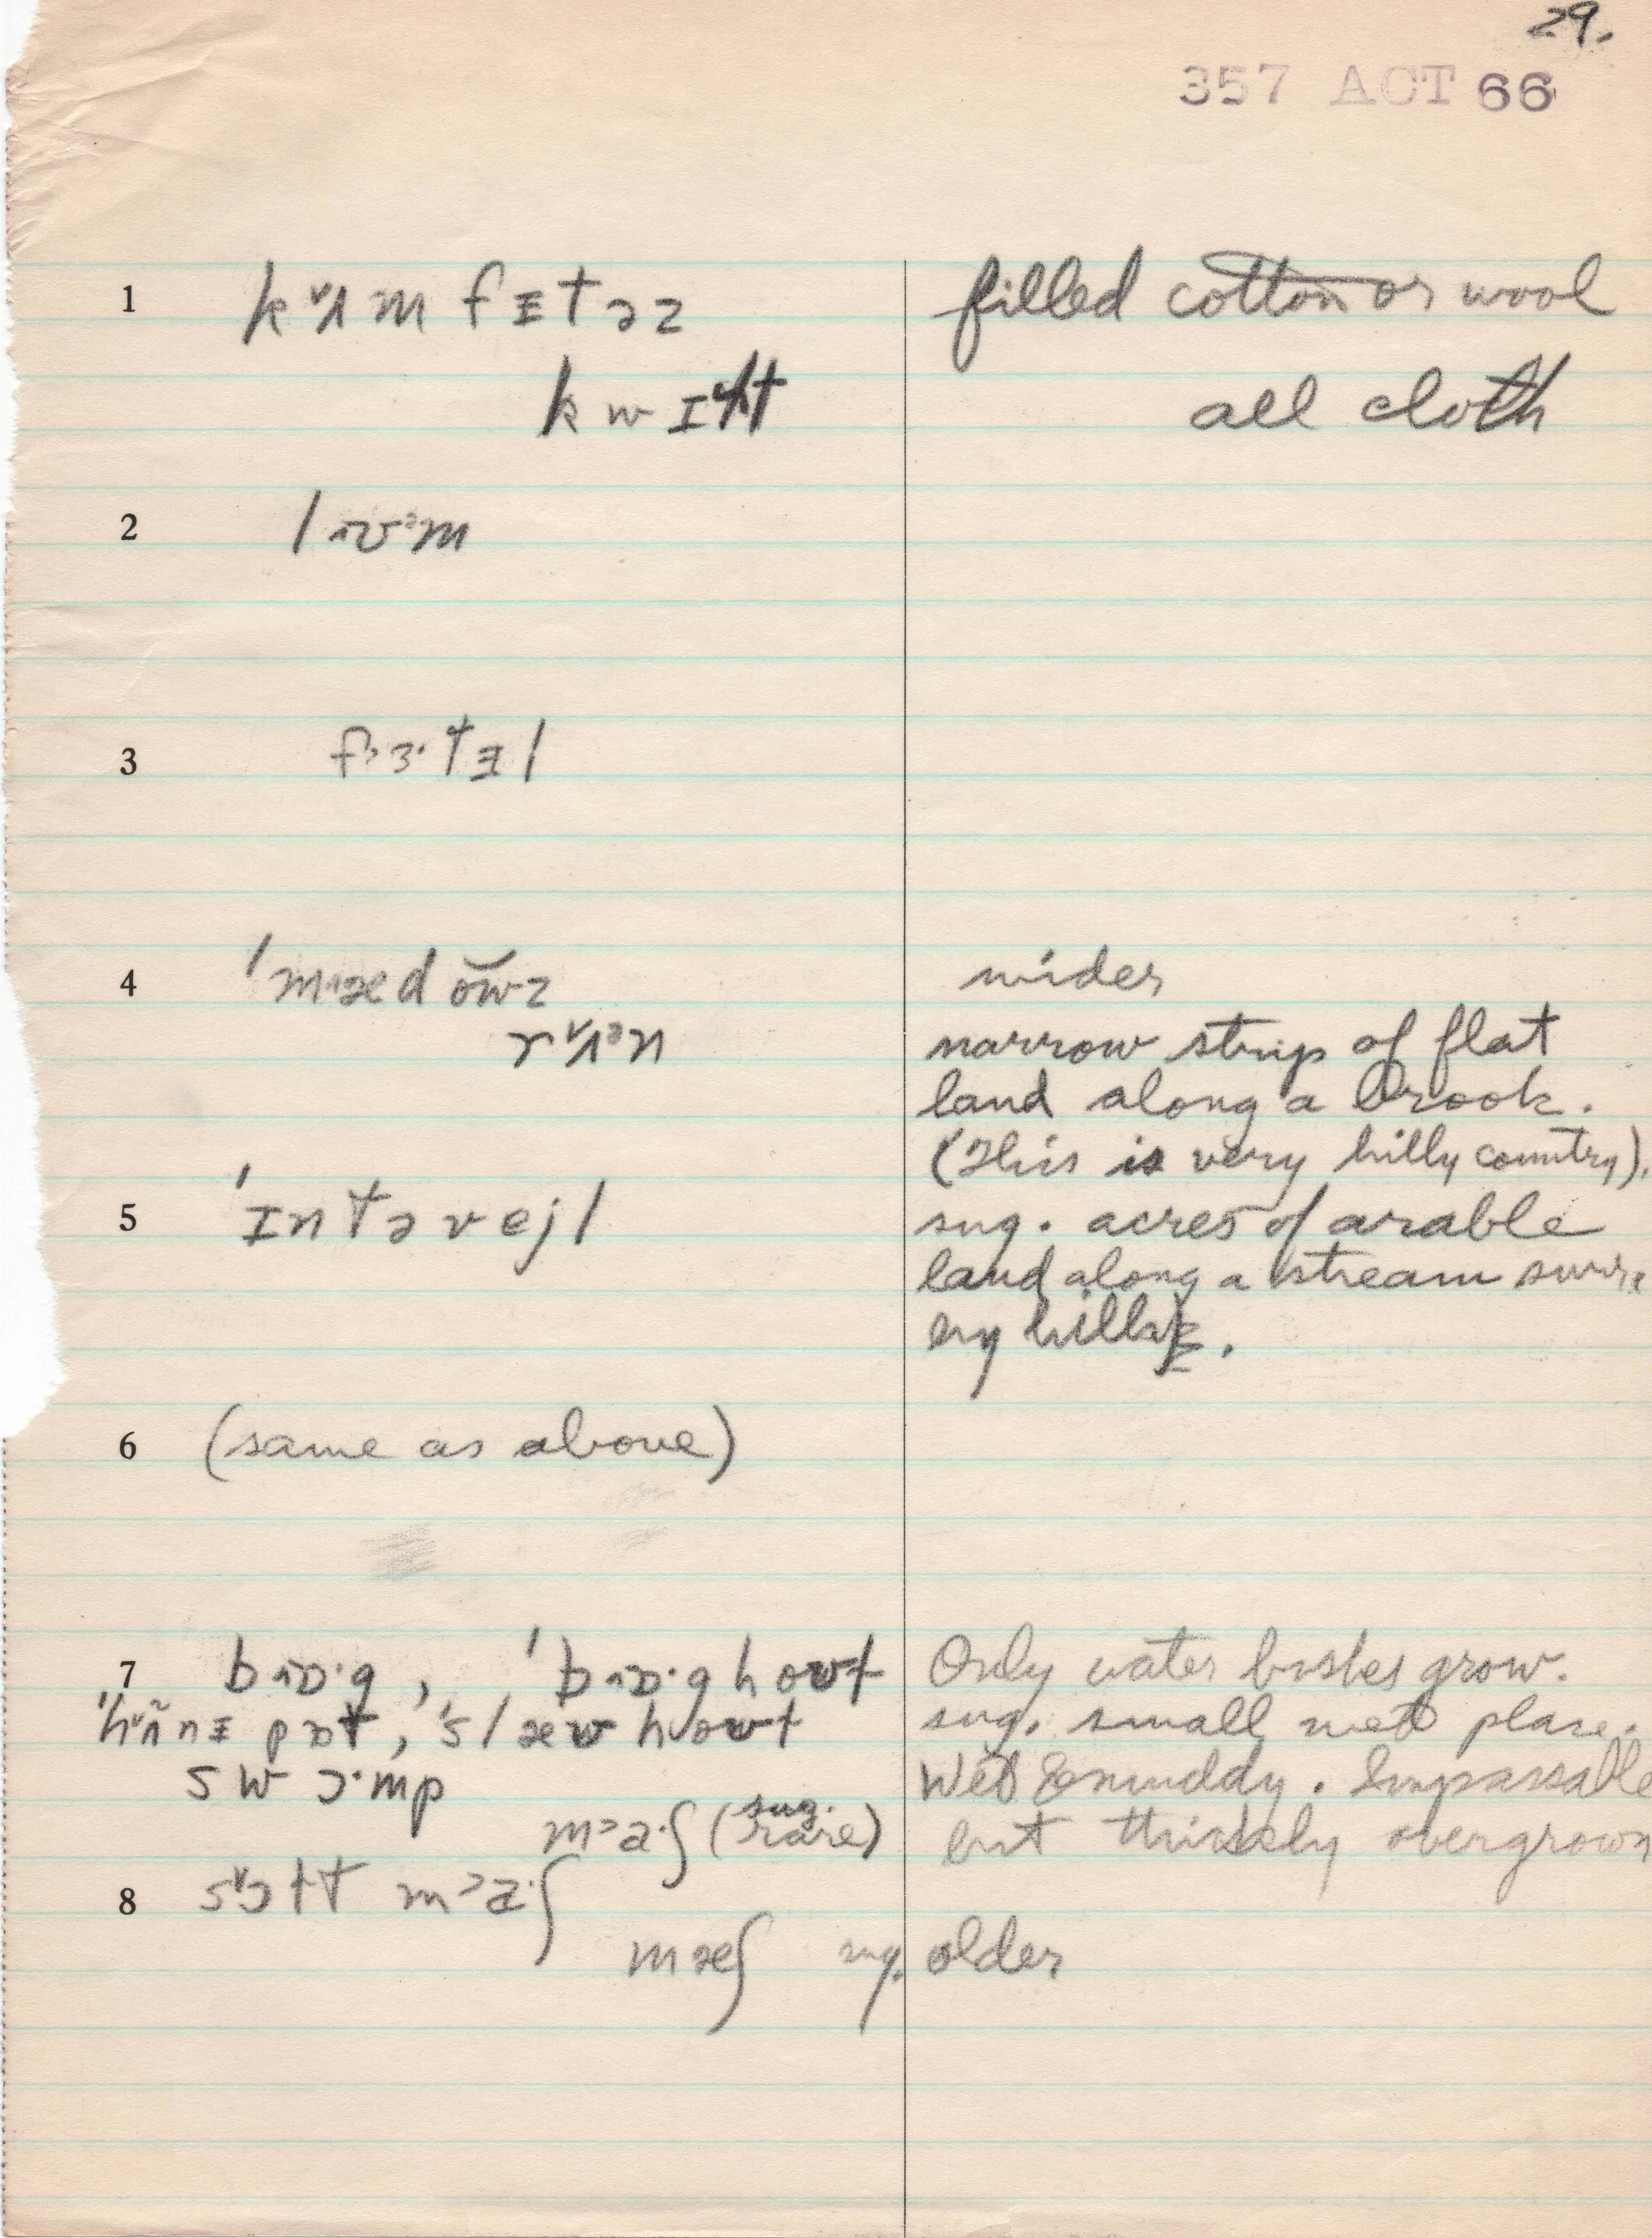 29.
357 ACT 66
1 kᵛʌm fᵻtəz filled cotton or wool
kwɪɫt all cloth
2 lɒᵊm
3 fɜ·tᵻl
4 ˈmædŏw̆z wider
rᵛʌᵊn narrow strip of flat
land along a brook.
(This is very hilly country).
5 ˈɪntəvejl sug. acres of arable
land along a stream
by hills.
6 (same as above)
7 bɒ·g, ˈbɒ·ghowt Only water bushes grow.
ˈhʌ̃nᵻ pɒt, ˈslæwhowt sug. small wet place.
swɔ·mp Wet & muddy. Impassable
maˑʃ (sug. rare) but thickly overgrown
8 sɔɫt maˑʃ
mæʃ sug. older